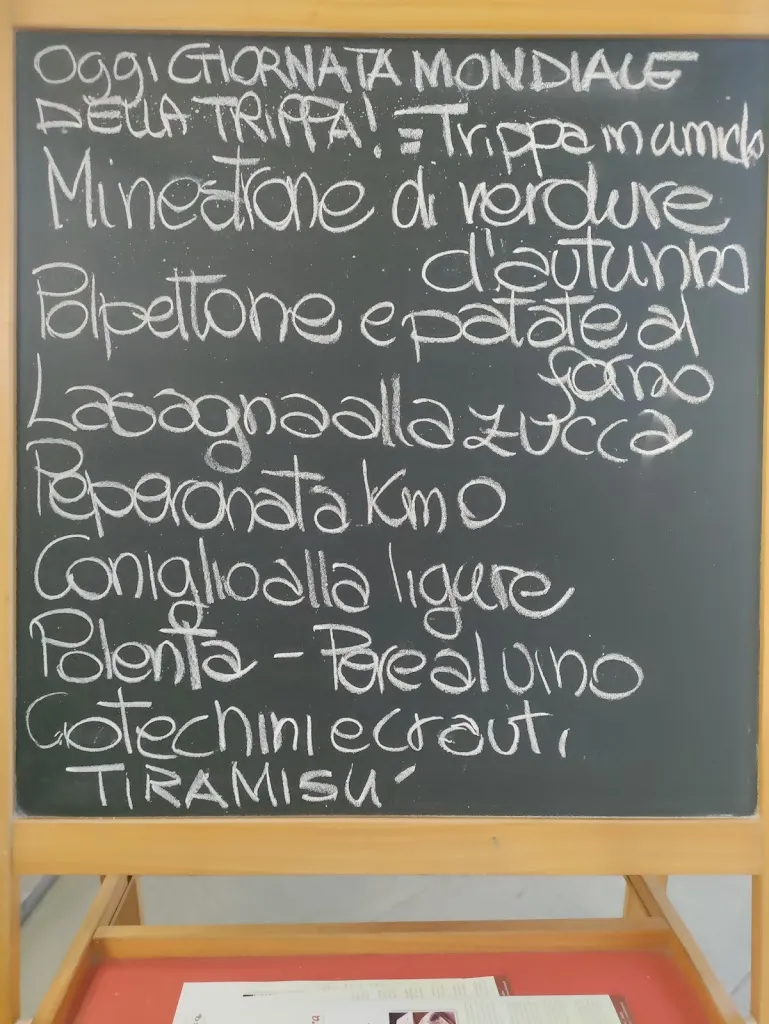 Oggi GIORNATA MONDIALE
DELLA TRIPPA! = Trippa in umido
Minestrone di verdure
d'autunno
Polpettone e patate al
forno
Lasagna alla zucca
Peperonata Km 0
Coniglio alla ligure
Polenta - Pere al vino
Cotechini e crauti
TIRAMISU'